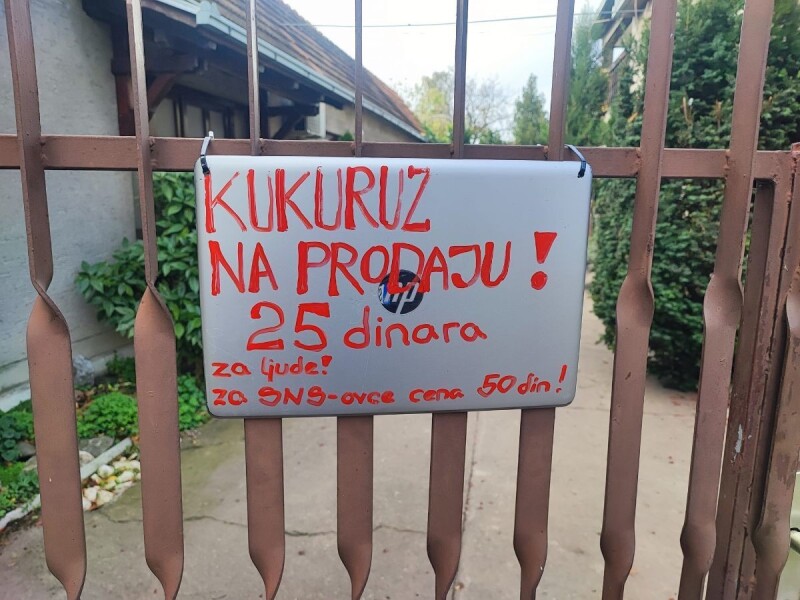 KUKURUZ
NA PRODAJU !
hp
25 dinara
za ljude!
za SNS-ovce cena 50 din!